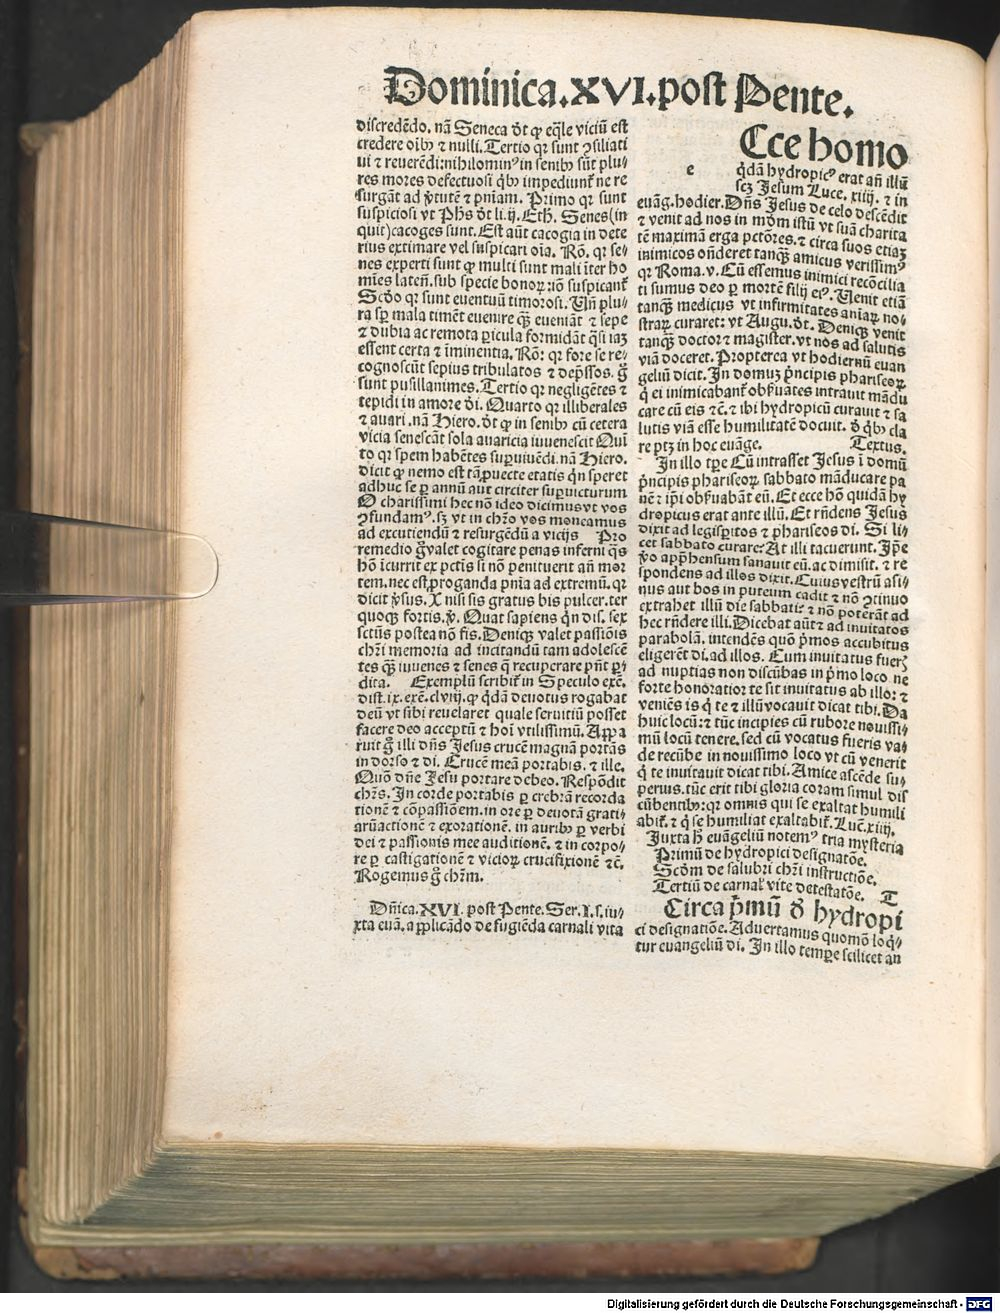 Dominica.XVI.post Pente.
discredēdo. nā Seneca d͛t ꝙ eq̄le viciū est
credere oīb᷒ ⁊ nulli. Tertio qꝛ sunt ꝯsiliati
ui ⁊ reuerēdi: nihilomin᷒ in senib᷒ sūt plu⸗
res mores defectuosi q̇b᷒ impediunt̄ ne re
surgāt ad v̓tutē ⁊ pn̄iam. Primo qꝛ sunt
suspiciosi vt Ph̄s d͛t li. ij. Eth. Senes (in
quit) cacoges sunt. Est aūt cacogia in dete
rius extimare vel suspicari oīa. Rō. qꝛ se⸗
nes experti sunt ꝙ multi sunt mali īter ho
mīes laten̄. sub specie bonoꝝ: iō suspicant̄
Scd̓o qꝛ sunt euentuū timorosi. Vn̄ plu⸗
ra sꝑ mala timēt euenire qꝫ̄ eueniāt ⁊ sepe
⁊ dubia ac remota ꝑicula formidāt q̄si iaꝫ
essent certa ⁊ īminentia. Rō: qꝛ fore se re⸗
cognoscūt sepius tribulatos ⁊ dep̄ssos. g̊
sunt pusillanimes. Tertio qꝛ negligētes ⁊
tepidi in amore d̓i. Quarto qꝛ illiberales
⁊ auari. nā Hiero. d͛t ꝙ in senib᷒ cū cetera
vicia senescāt sola auaricia iuuenescit Quī
to qꝛ spem habētes suꝑuiuēdi. nā Hiero.
dicit ꝙ nemo est tā ꝓuecte etatis q̇n speret
adhuc se ꝑ annū aut circiter suꝑuicturum
O charissimi hec nō ideo dicimus vt vos
ꝯfundam᷒. sꝫ vt in chr̄o vos moneamus
ad excutiendū ⁊ resurgēdū a vicijs Pro
remedio g̊ valet cogitare penas inferni q̄s
hō īcurrit ex pctīs si nō penituerit an̄ mor
tem. nec est ꝓroganda pn̄ia ad extremū. qꝛ
dicit v̓sus. X nisi sis gratus bis pulcer. ter
quoqꝫ fortis. v̓. Quat sapiens q̇n dis. sex
sctūs postea nō fis. Deniqꝫ valet passiōis
chr̄i memoria ad incitandū tam adolescē
tes qꝫ̄ iuuenes ⁊ senes q̄ recuperare pn̄t ꝑ⸗
dita. Exemplū scribit̄ in Speculo exē.
dist. ix. exē. clviij. ꝙ q̇dā deuotus rogabat
deū vt sibi reuelaret quale seruitiū posset
facere deo acceptū ⁊ hoī vtilissimū. Appa
ruit g̊ illi dn̄s Jesus crucē magnā portās
in dorso ⁊ di. Crucē meā portabis. ⁊ ille.
Quō dn̄e Jesu portare debeo. Respōdit
chr̄s. In corde portabis ꝑ crebrā recorda
tionē ⁊ cōpassiōem. in ore ꝑ deuotā grati⸗
arūactionē ⁊ exorationē. in aurib᷒ ꝑ verbi
dei ⁊ passionis mee auditionē. ⁊ in corpo⸗
re ꝑ castigationē ⁊ vicioꝝ crucifixionē ⁊c̄.
Rogemus g̊ chr̄m.
Dn̄ica. XVI. post Pente. Ser. I. s. iu⸗
xta euā. applicādo de fugiēda carnali vita
e Cce homo
q̇dā hydropic᷒ erat an̄ illū
scꝫ Jesum Luce. xiiij. ⁊ in
euāg. hodier. Dn̄s Jesus de celo descēdit
⁊ venit ad nos in mōm istū vt suā charita
tē maximā erga pctōres. ⁊ circa suos etiaꝫ
inimicos on̄deret tanqꝫ̄ amicus verissim᷒
qꝛ Roma. v. Cū essemus inimici recōcilia
ti sumus deo ꝑ mortē filij ei᷒. Venit etiā
tanqꝫ̄ medicus vt infirmitates aniaꝝ no⸗
straꝝ curaret: vt Augu. d͛t. Deniqꝫ venit
tanqꝫ̄ doctor ⁊ magister. vt nos ad salutis
viā doceret. Propterea vt hodiernū euan
geliū dicit. In domuꝫ p̓ncipis phariseoꝝ
q̇ ei inimicabant̄ obseruātes intrauit mādu
care cū eis ⁊c̄. ⁊ ibi hydropicū curauit ⁊ sa
lutis viā esse humilitatē docuit. d̓ q̇b᷒ cla
re ptꝫ in hoc euāge. Textus.
In illo tꝑe Cū intrasset Jesus ī domū
p̓ncipis phariseoꝝ sabbato māducare pa
nē ⁊ ip̄i obseruabāt eū. Et ecce hō quidā hy
dropicus erat ante illū. Et rn̄dens Jesus
dixit ad legisꝑitos ⁊ phariseos di. Si li⸗
cet sabbato curare: At illi tacuerunt. Ip̄e
v̓o app̄hensum sanauit eū. ac dimisit. ⁊ re
spondens ad illos dixit. Cuius vestrū asi⸗
nus aut bos in puteum cadit ⁊ nō ꝯtinuo
extrahet illū die sabbati: ⁊ nō poterāt ad
hec rn̄dere illi. Dicebat aūt ⁊ ad inuitatos
parabolā. intendēs quō p̓mos accubitus
eligerēt di. ad illos. Cum inuitatus fuerꝭ
ad nuptias non discūbas in p̓mo loco ne
forte honoratior te sit inuitatus ab illo: ⁊
veniēs is q̇ te ⁊ illū vocauit dicat tibi. Da
huic locū: ⁊ tūc incipies cū rubore nouissi⸗
mū locū tenere. sed cū vocatus fueris va⸗
de recūbe in nouissimo loco vt cū venerit
q̇ te inuitauit dicat tibi. Amice ascēde su⸗
perius. tūc erit tibi gloria coram simul dis
cūbentib᷒: qꝛ omnis qui se exaltat humili
abit̄. ⁊ q̇ se humiliat exaltabit̄. Luc̄. xiiij.
Juxta h̄ euāgeliū notem᷒ tria mysteria
Primū de hydropici designatōe.
Scd̓m de salubri chr̄i instructiōe.
Tertiū de carnal̓ vite detestatōe. T
Circa p̓mū d̓ hydropi
ci designatiōe. Aduertamus quomō loq̇⸗
tur euangeliū di. In illo tempore scilicet an
Digitalisierung gefördert durch die Deutsche Forschungsgemeinschaft - DFG